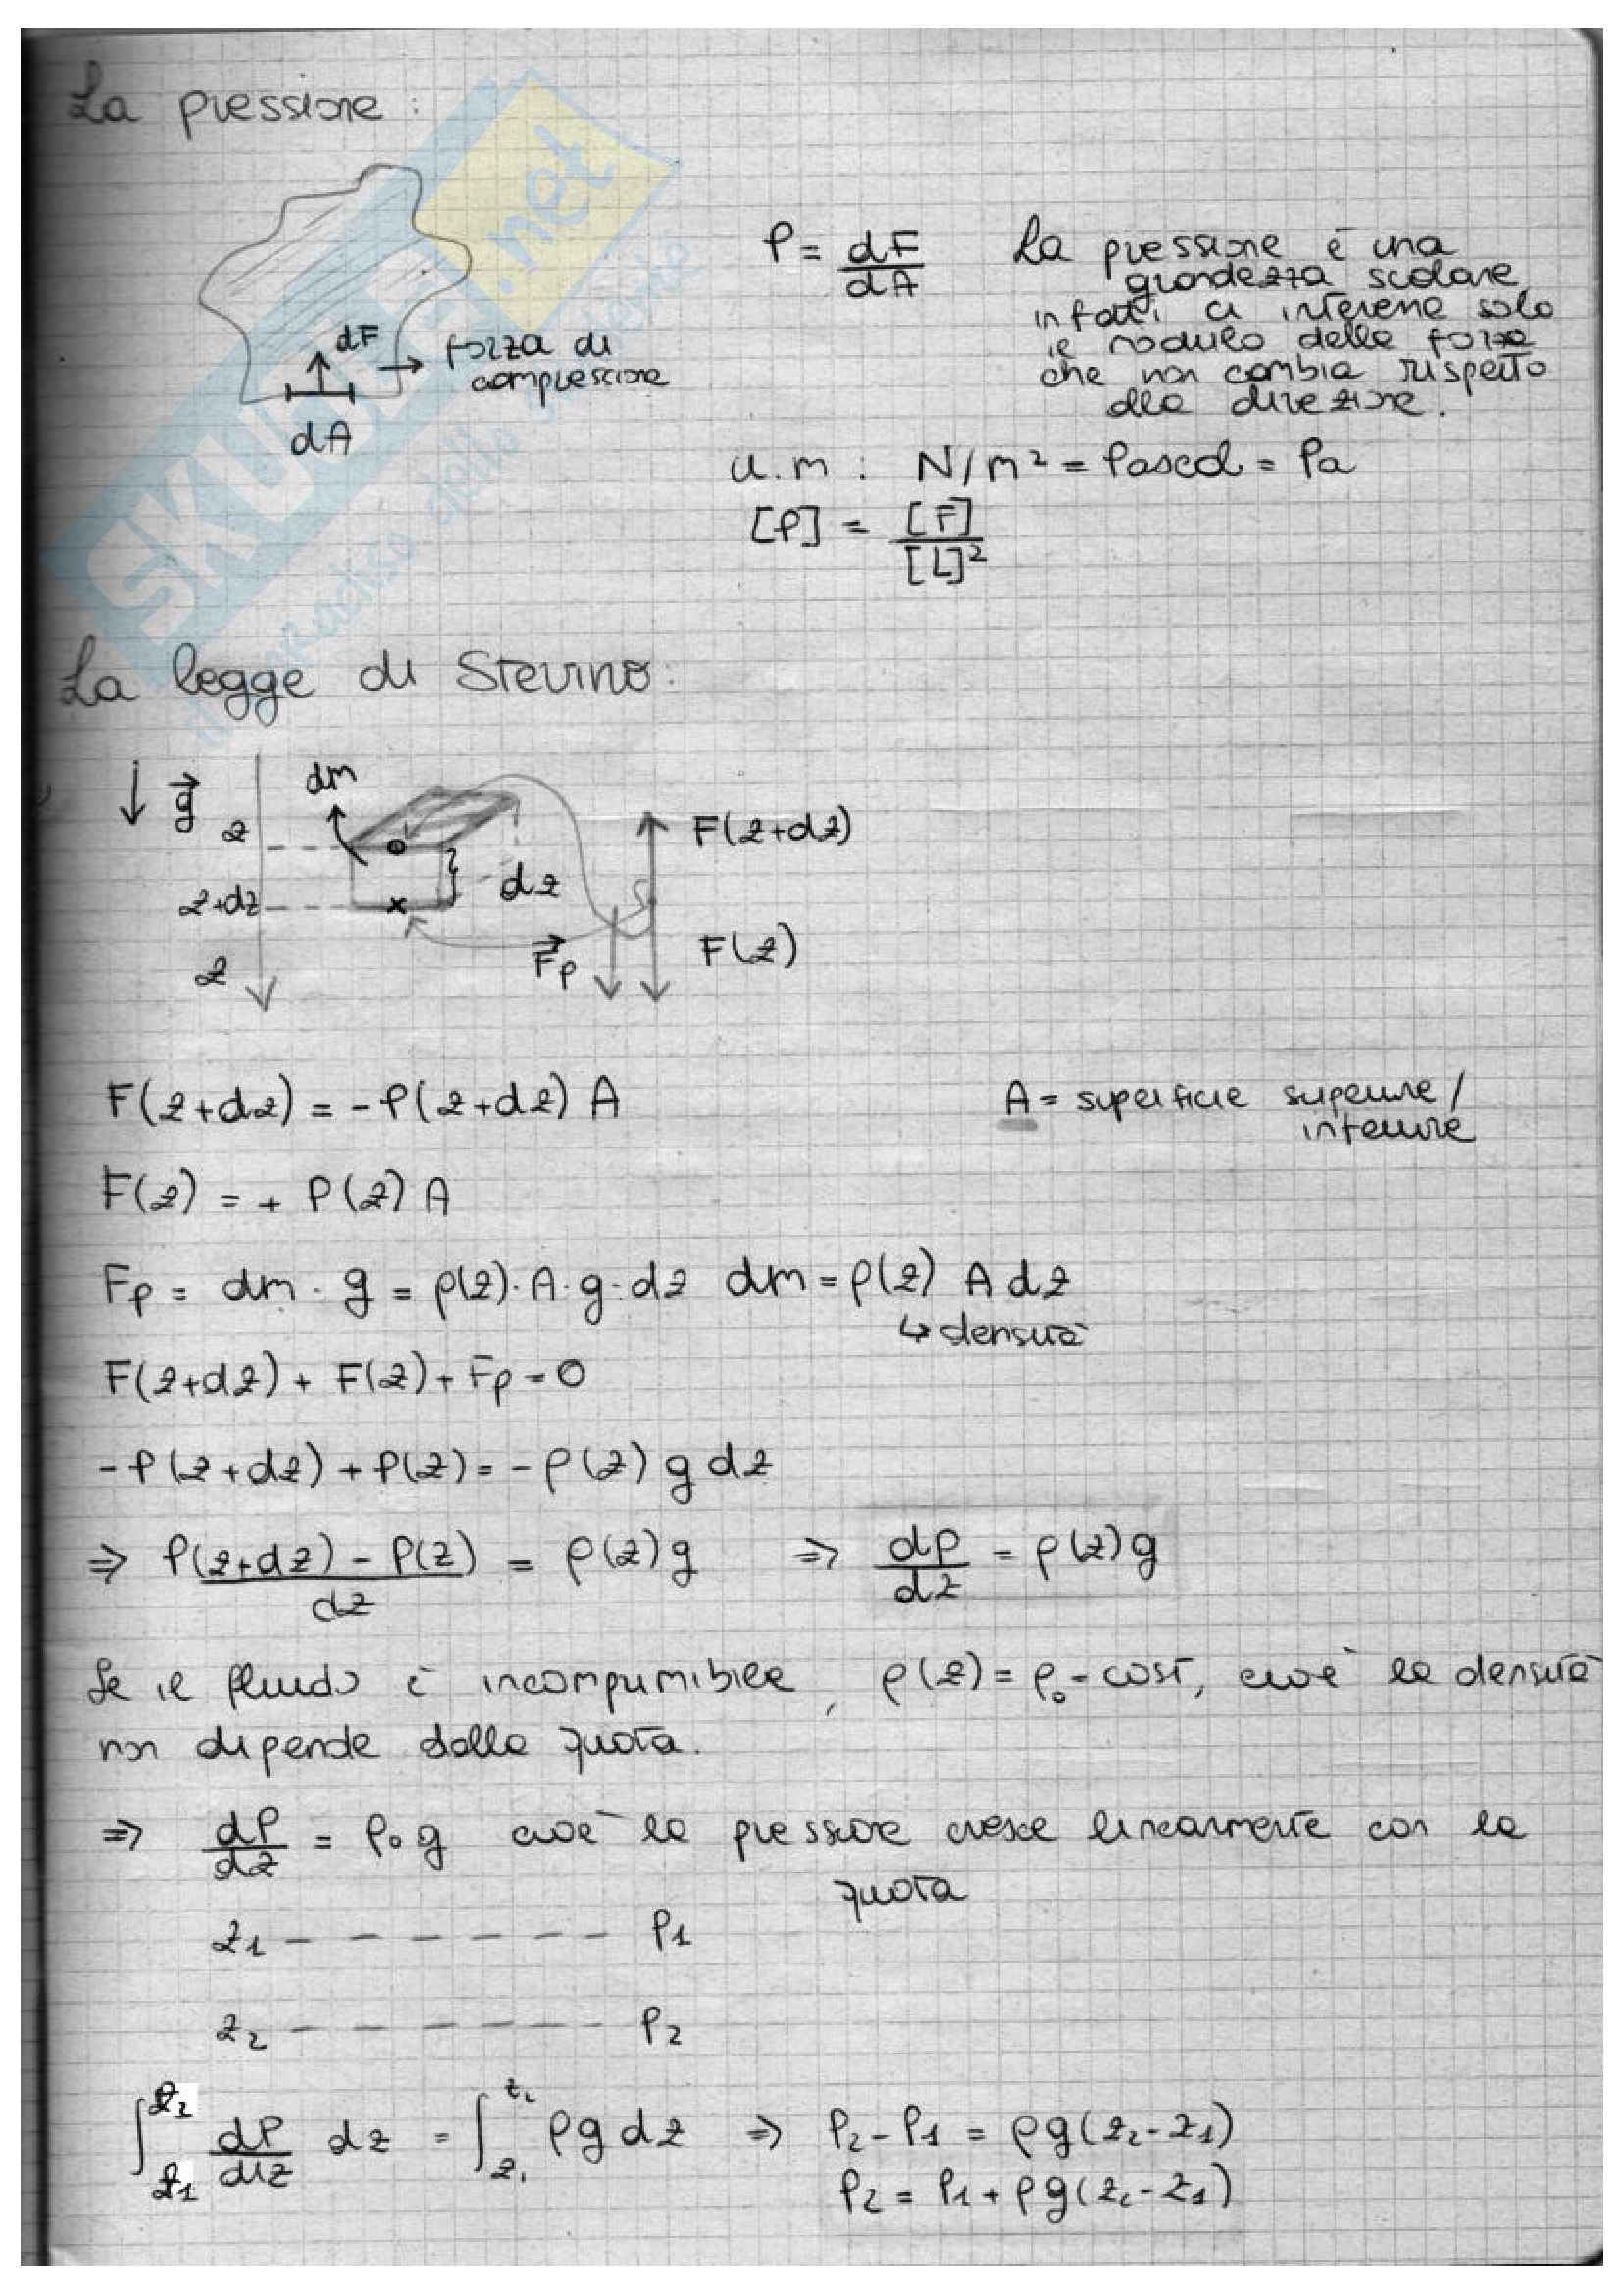 La pressione:
P = dF/dA La pressione è una
grandezza scalare
infatti ci interessa solo
il modulo della forza
che non cambia rispetto
alla direzione.
dF → forza di
compressione
dA
u.m : N/m² = Pascal = Pa
[P] = [F]/[L]²
SKUOLA.net
La legge di Stevino:
g⃗
dm
z
F(z+dz)
z+dz
dz
z
F⃗p
F(z)
F(z+dz) = -P(z+dz) A
A = superficie superiore/
inferiore
F(z) = + P(z) A
Fp = dm · g = ρ(z)·A·g·dz dm = ρ(z) A dz
↳ densità
F(z+dz) + F(z) + Fp = 0
-P(z+dz) + P(z) = -ρ(z) g dz
⇒ P(z+dz) - P(z)/dz = ρ(z) g ⇒ dP/dz = ρ(z) g
Se il fluido è incomprimibile, ρ(z) = ρ₀ = cost, cioè la densità
non dipende dalla quota.
⇒ dP/dz = ρ₀ g cioè la pressione cresce linearmente con la
quota
z₁ – – – – – – – P₁
z₂ – – – – – – – P₂
∫_z₁^z₂ dP/dz dz = ∫_z₁^z₂ ρg dz ⇒ P₂ - P₁ = ρg(z₂ - z₁)
P₂ = P₁ + ρg(z₂ - z₁)